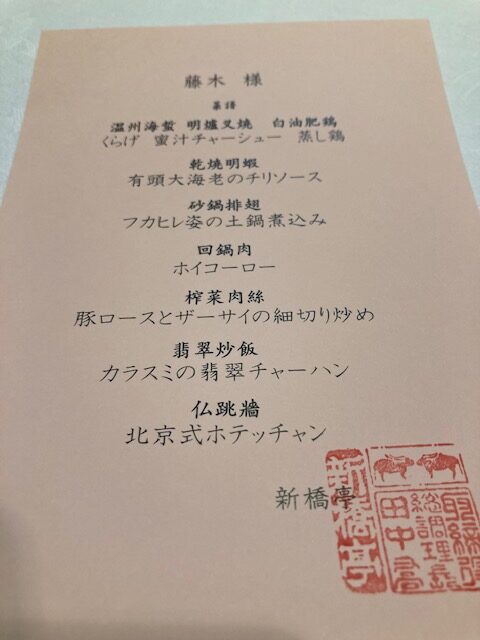 藤木 様
菜譜
温州海蜇 明爐叉焼 白油肥鶏
くらげ 蜜汁チャーシュー 蒸し鶏
乾焼明蝦
有頭大海老のチリソース
砂鍋排翅
フカヒレ姿の土鍋煮込み
回鍋肉
ホイコーロー
榨菜肉絲
豚ロースとザーサイの細切り炒め
翡翠炒飯
カラスミの翡翠チャーハン
仏跳牆
北京式ホテッチャン
新橋亭
新橋亭
総調理長
田中